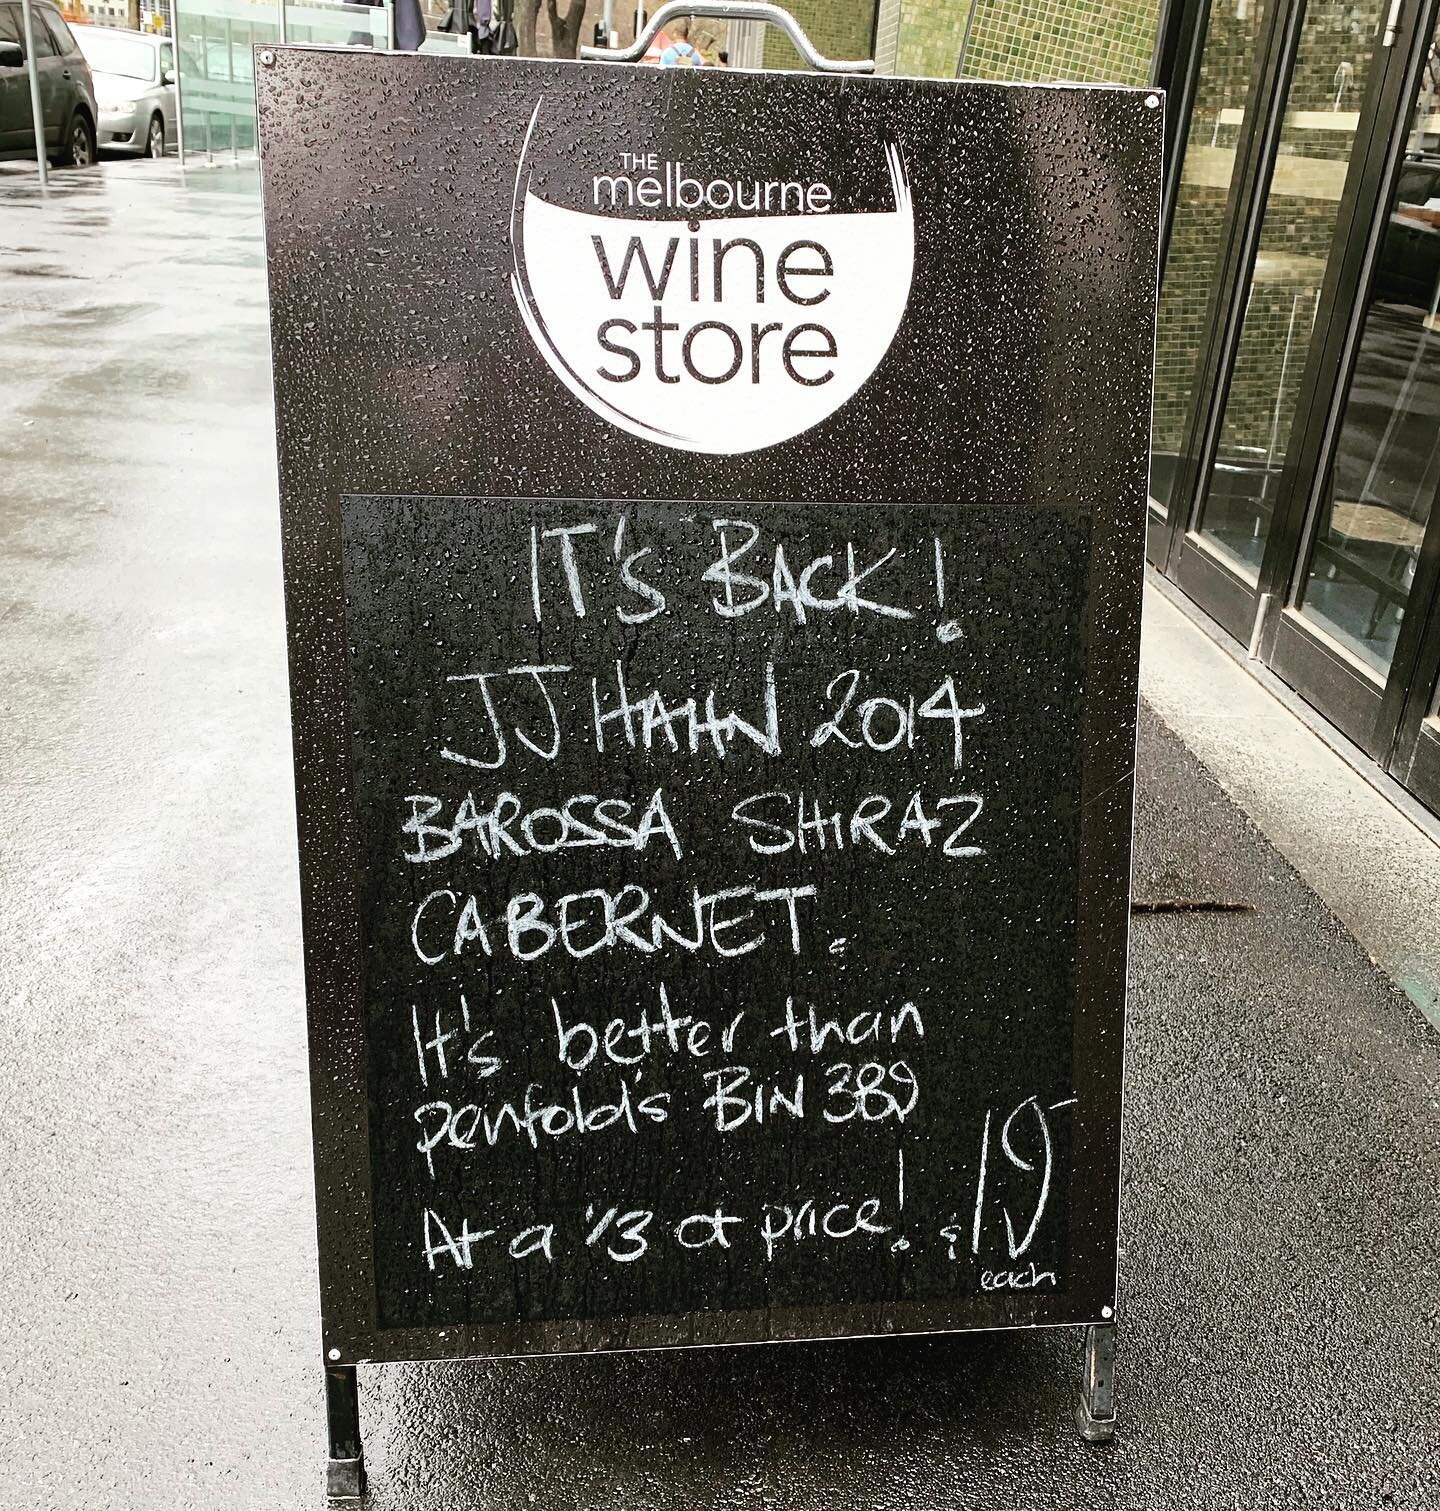 THE
melbourne
wine
store
IT'S BACK!
JJ HAHN 2014
BAROSSA SHIRAZ
CABERNET.
It's better than
penfold's BIN 389
At a 1/3 of price!
each